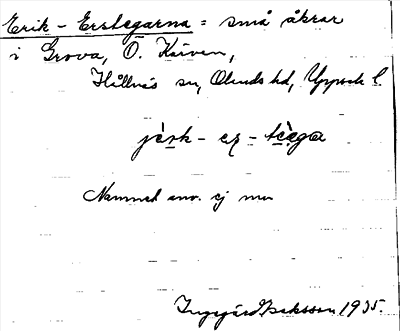 Erik-Erstegarna = små åkrar
i Grova, Ö. Kärven,
Hållnäs sn, Olands hd, Upps. l.
jèrk - er - tèga
Namnet anv. ej mer
Ingegärd Isaksson 1935.